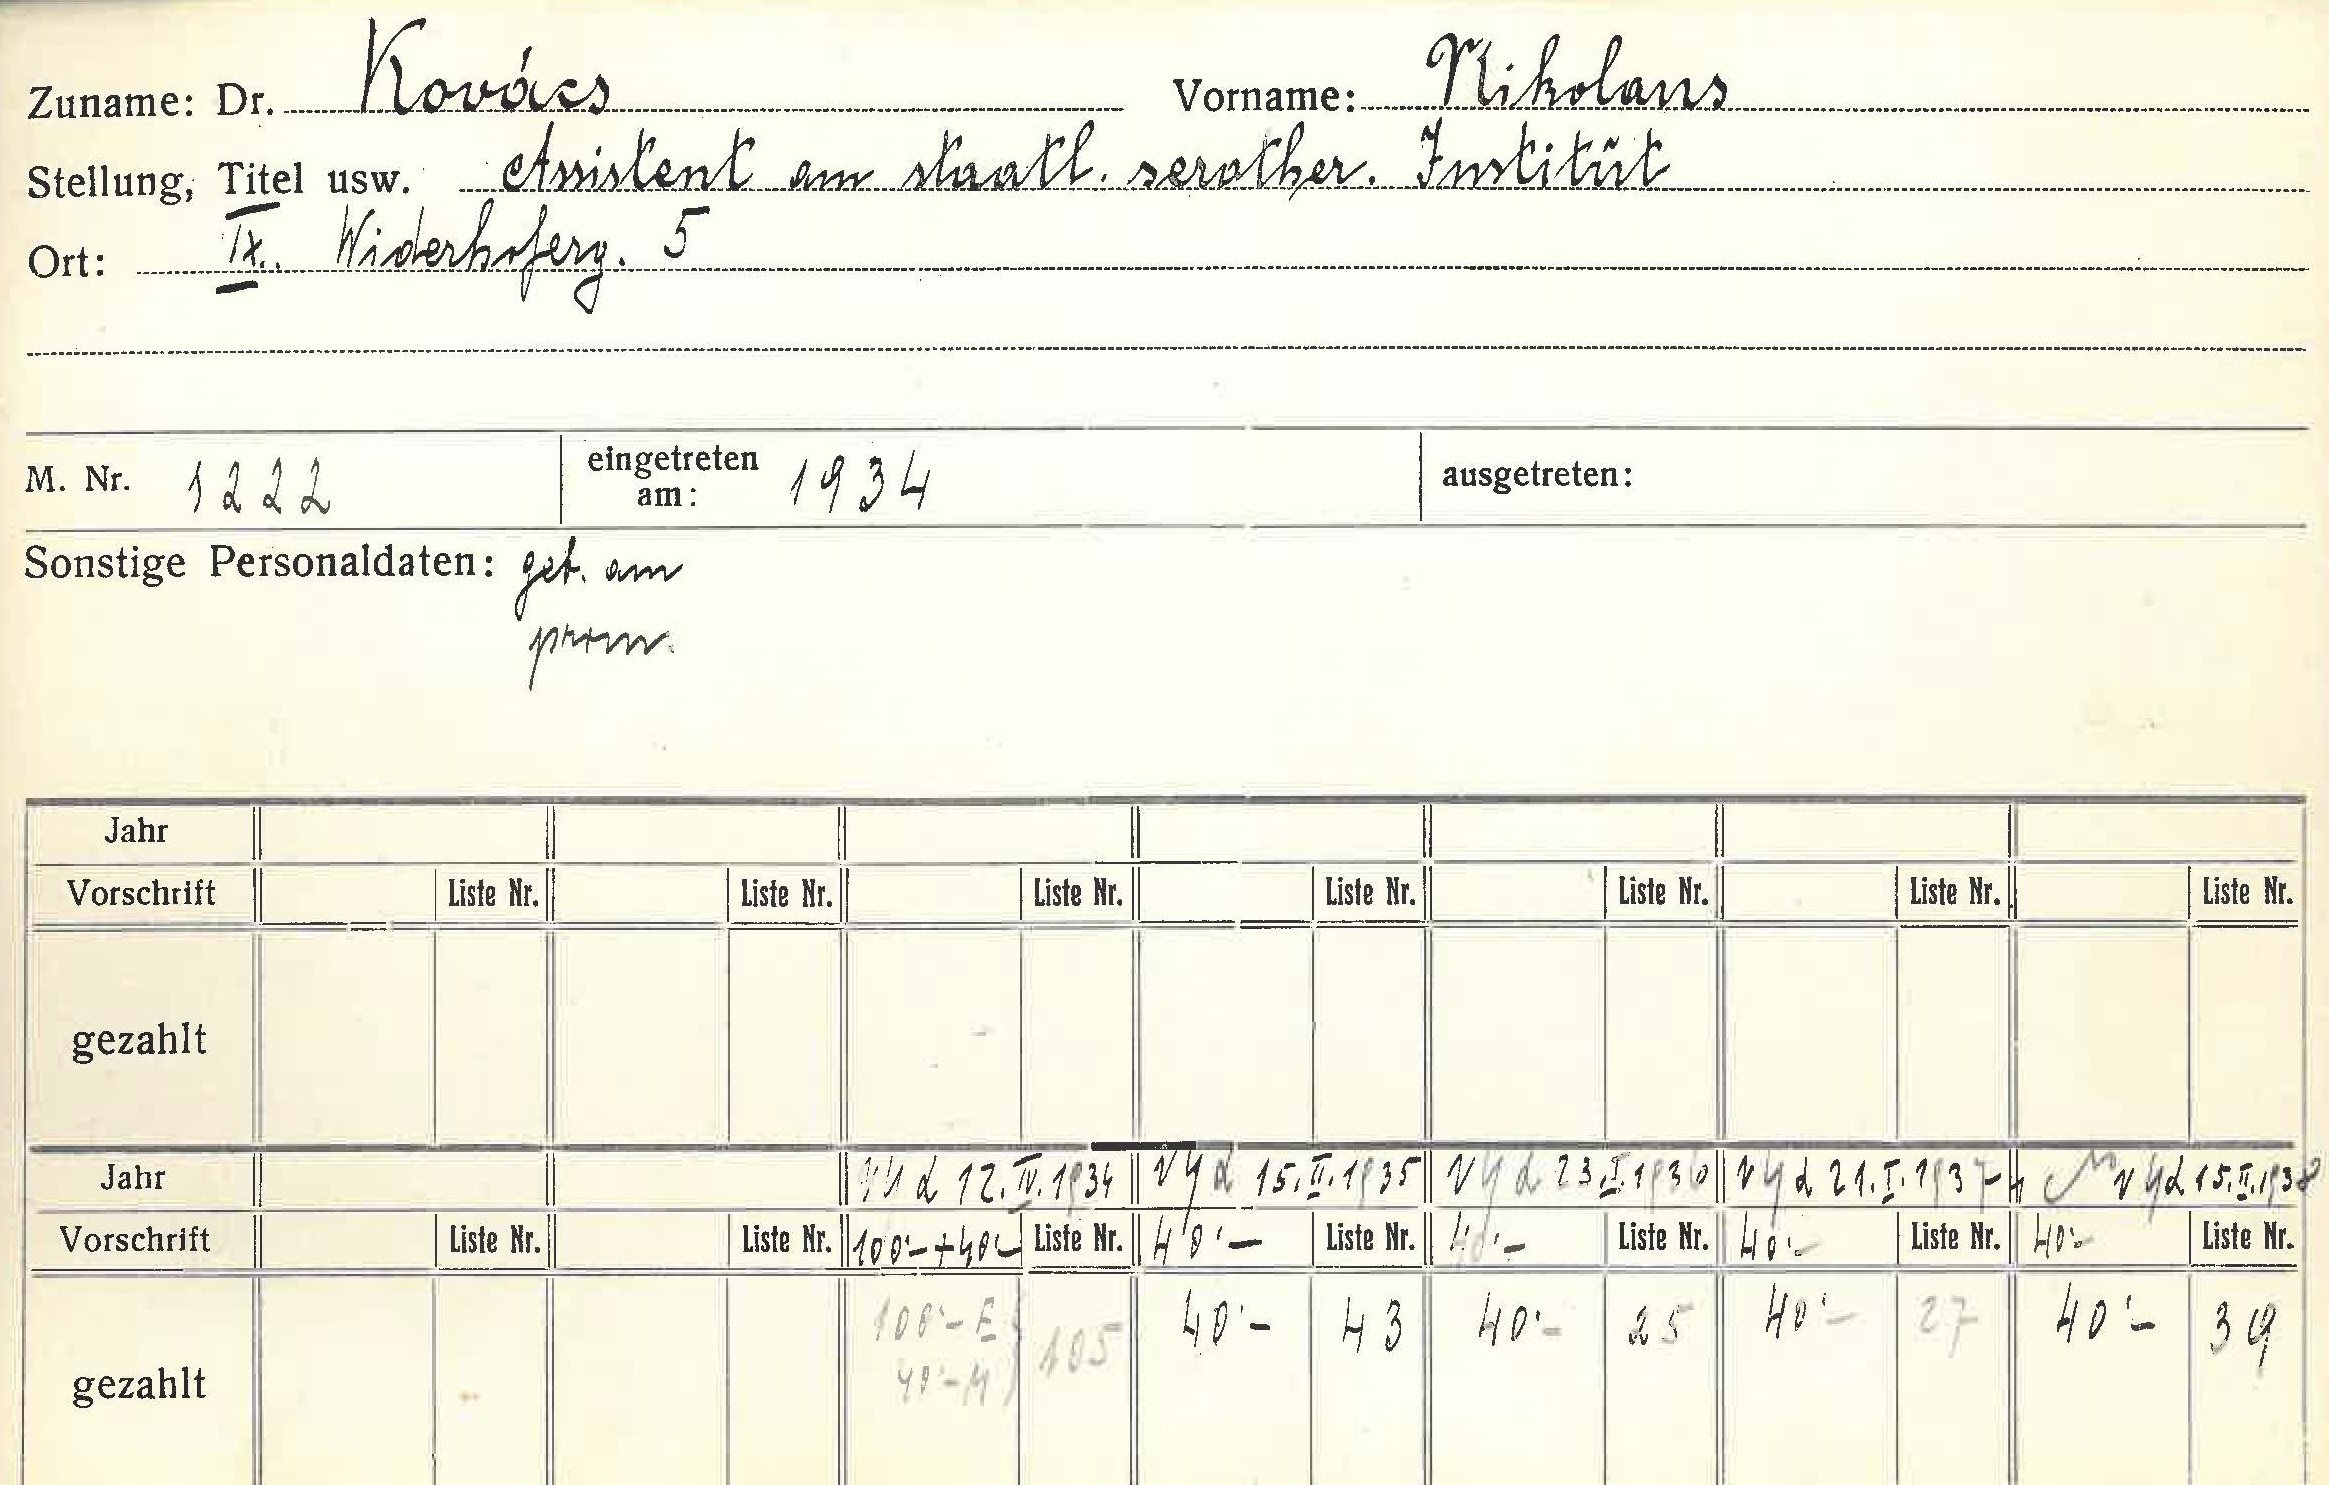 Zuname: Dr. Kovács Vorname: Nikolaus
Stellung, Titel usw. Assistent am staatl. serother. Institut
Ort: IX. Widerhoferg. 5
M. Nr. 1222 eingetreten am: 1934 ausgetreten:
Sonstige Personaldaten: geb. am
prom.
Jahr
Vorschrift Liste Nr. Liste Nr. Liste Nr. Liste Nr. Liste Nr. Liste Nr. Liste Nr.
gezahlt
Jahr 12.IV.1934 15.II.1935 23.I.1936 21.I.1937 15.II.1938
Vorschrift Liste Nr. Liste Nr. 100'-+40'- Liste Nr. 40'- Liste Nr. 40'- Liste Nr. 40'- Liste Nr. 40'- Liste Nr.
100'- E 105 40'- 43 40'- 25 40'- 27 40'- 39
gezahlt 40'- M